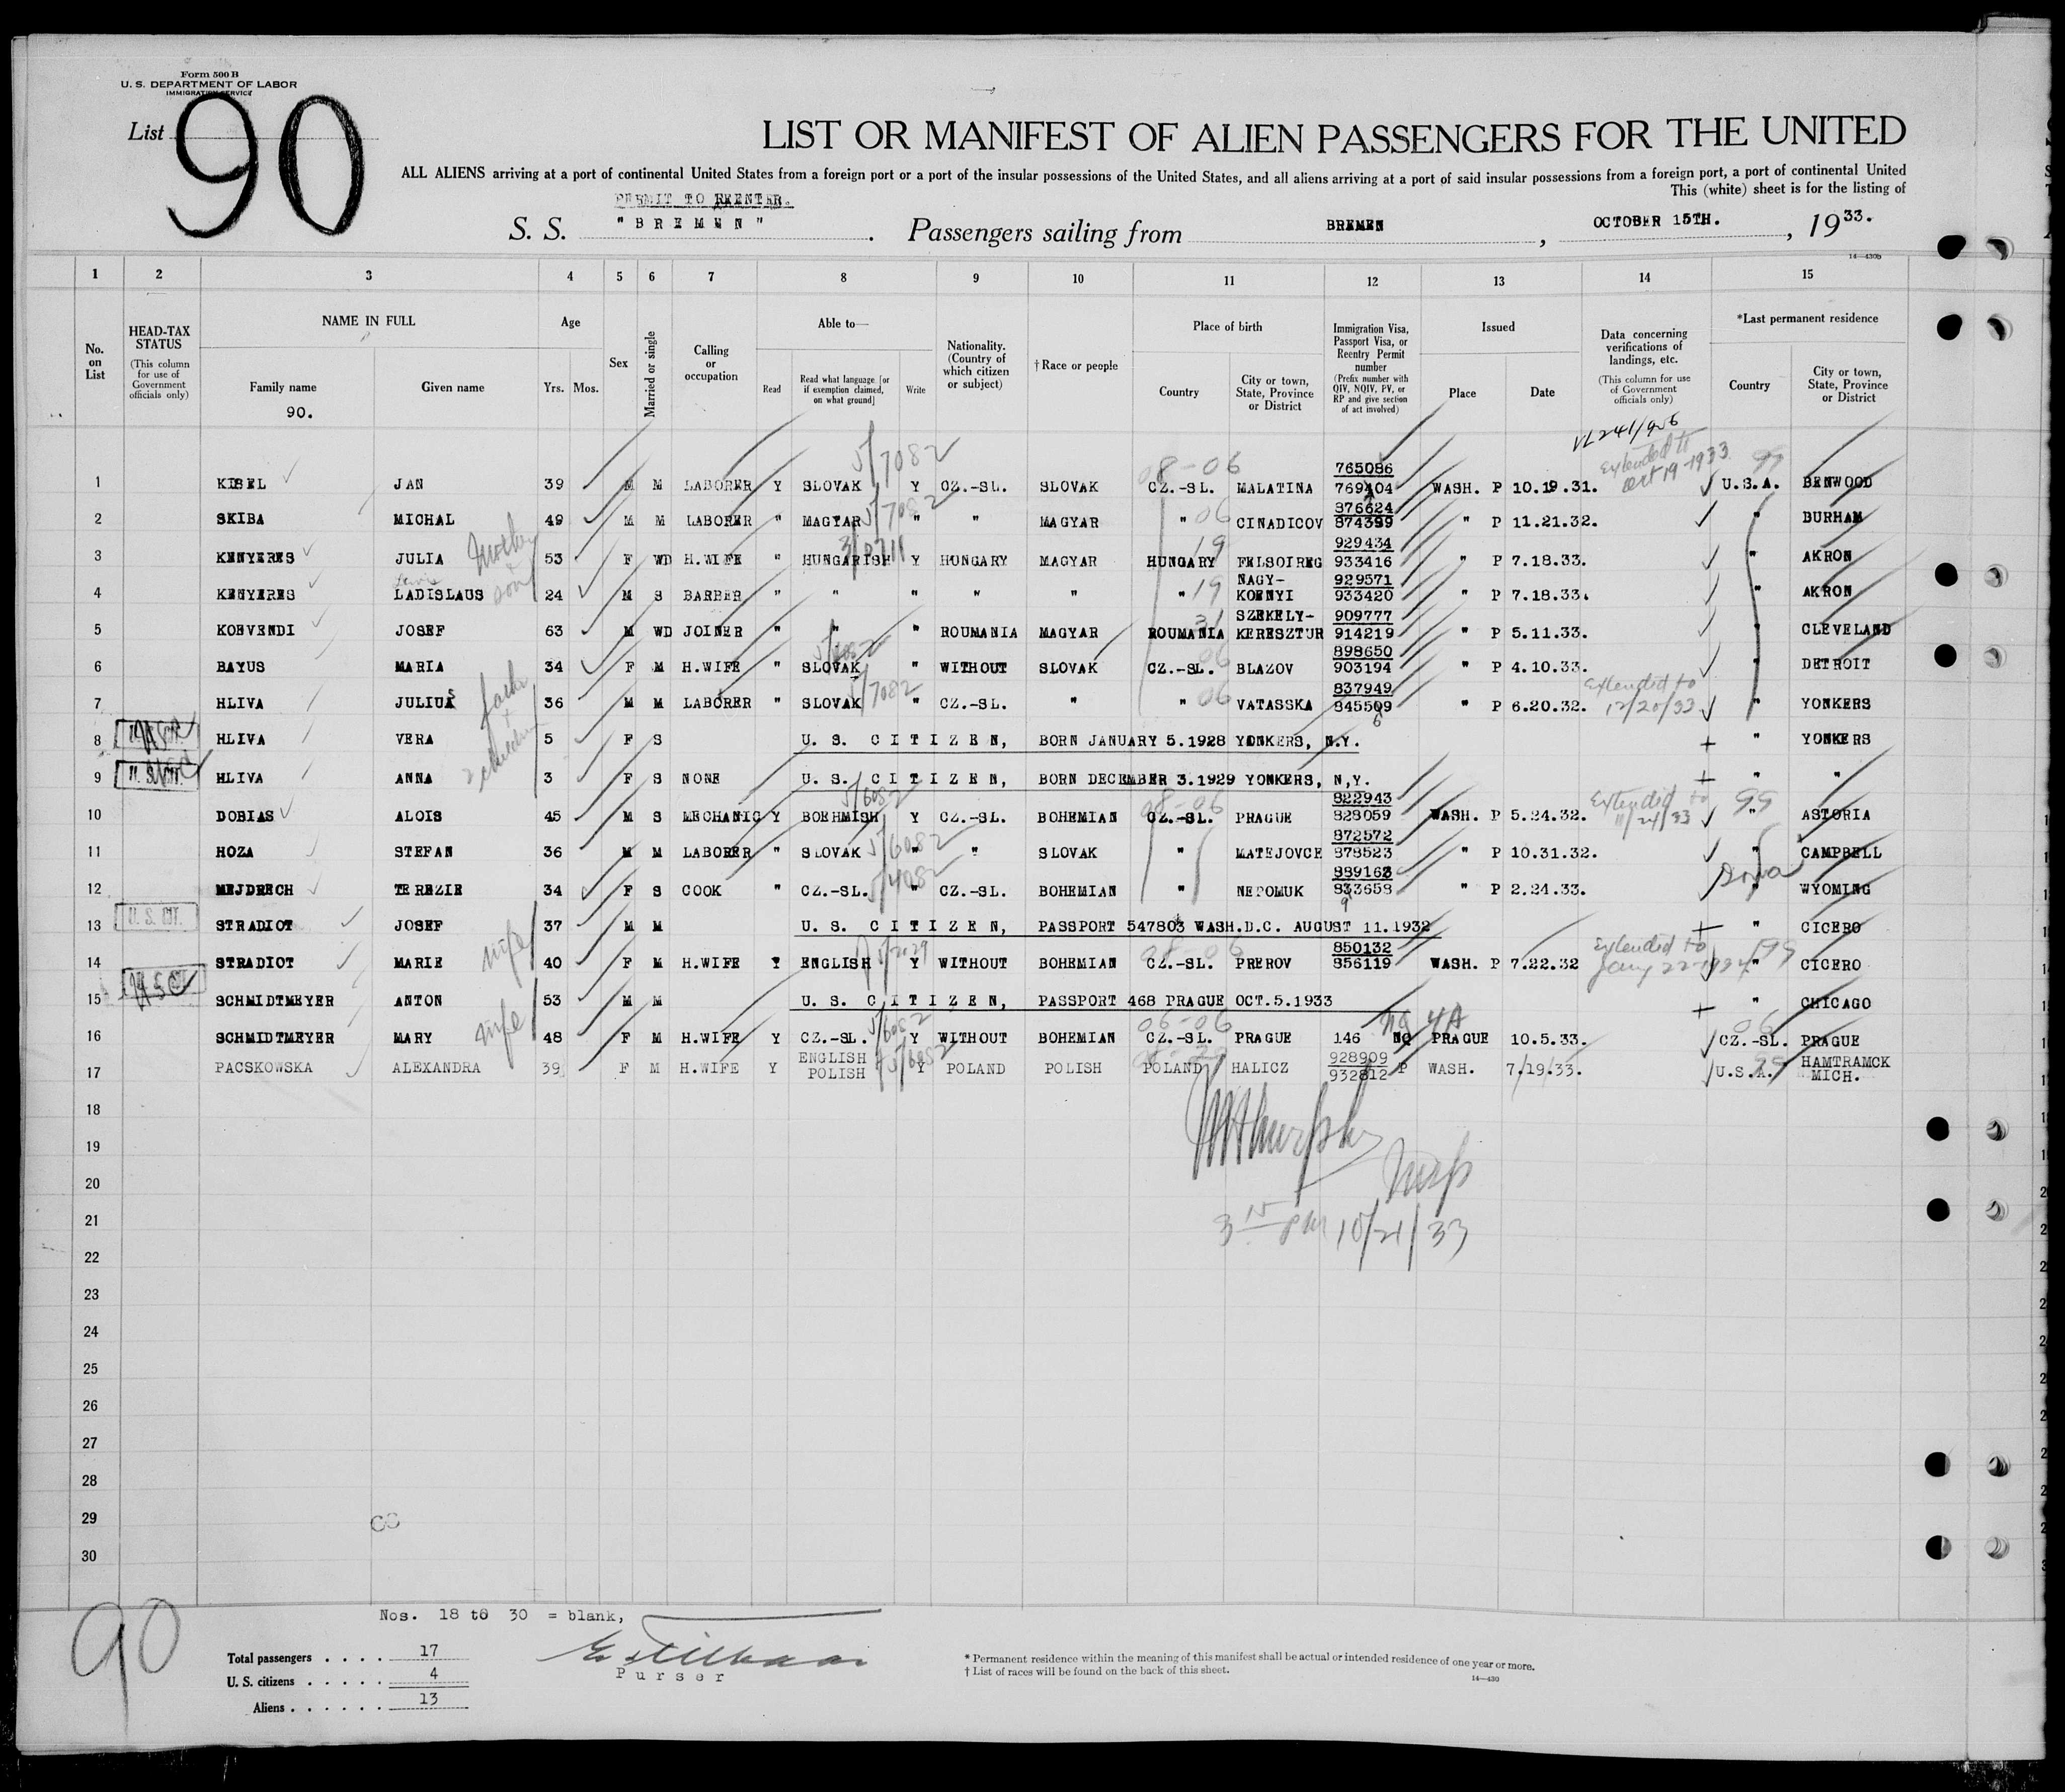 Form 500 B
U. S. DEPARTMENT OF LABOR
IMMIGRATION SERVICE
List 90
LIST OR MANIFEST OF ALIEN PASSENGERS FOR THE UNITED
ALL ALIENS arriving at a port of continental United States from a foreign port or a port of the insular possessions of the United States, and all aliens arriving at a port of said insular possessions from a foreign port, a port of continental United
This (white) sheet is for the listing of
PERMIT TO REENTER.
S. S. "BREMEN". Passengers sailing from BREMEN, OCTOBER 15TH., 1933.
14—430b
1 2 3 4 5 6 7 8 9 10 11 12 13 14 15
No. on List
HEAD-TAX STATUS (This column for use of Government officials only)
NAME IN FULL
Family name Given name
90.
Age
Yrs. Mos.
Sex
Married or single
Calling or occupation
Able to—
Read Read what language [or if exemption claimed, on what ground] Write
Nationality. (Country of which citizen or subject)
† Race or people
Place of birth
Country City or town, State, Province or District
Immigration Visa, Passport Visa, or Reentry Permit number (Prefix number with QIV, NQIV, PV, or RP and give section of act involved)
Issued
Place Date
Data concerning verifications of landings, etc. (This column for use of Government officials only)
*Last permanent residence
Country City or town, State, Province or District
VL 241/956
Extended to Oct 19-1933
5/7082 08-06 99
765086
1 KISEL JAN 39 M M LABORER Y SLOVAK Y CZ.-SL. SLOVAK CZ.-SL. MALATINA 769404 WASH. P 10.19.31. U.S.A. BENWOOD
5/7082 06
376624
2 SKIBA MICHAL 49 M M LABORER " MAGYAR " " MAGYAR " CINADICOV 874399 " P 11.21.32. BURHAM
Mother & son
19
929434
3 KENYERES JULIA 53 F WD H.WIFE " HUNGARISH Y HUNGARY MAGYAR HUNGARY FELSOIREG 933416 " P 7.18.33. " AKRON
NAGY- 929571
4 KENYERES LADISLAUS 24 M S BARBER " " " " " " 19 KOENYI 933420 " P 7.18.33. " AKRON
SZEKELY- 909777
5 KOEVENDI JOSEF 63 M WD JOINER " " " ROUMANIA MAGYAR ROUMANIA KERESZTUR 914219 " P 5.11.33. " CLEVELAND
898650
6 BAYUS MARIA 34 F M H.WIFE " SLOVAK " WITHOUT SLOVAK CZ.-SL. 06 BLAZOV 903194 " P 4.10.33. " DETROIT
father & 2 children
5/7082
837949
Extended to 12/20/33
7 HLIVA JULIUS 36 M M LABORER " SLOVAK " CZ.-SL. " " 06 VATASSKA 845509 " P 6.20.32. " YONKERS
6
8 HLIVA VERA 5 F S U. S. CITIZEN, BORN JANUARY 5.1928 YONKERS, N.Y. " YONKERS
U. S. CIT.
9 HLIVA ANNA 3 F S NONE U. S. CITIZEN, BORN DECEMBER 3.1929 YONKERS, N,Y. " "
5/6082 08-06 822943
Extended to 11/24/33 99
10 DOBIAS ALOIS 45 M S MECHANIC Y BOEHMISH Y CZ.-SL. BOHEMIAN CZ.-SL. PRAGUE 828059 WASH. P 5.24.32. " ASTORIA
5/6082
872572
11 HOZA STEFAN 36 M M LABORER " SLOVAK " " SLOVAK " MATEJOVCE 878523 " P 10.31.32. " CAMPBELL
5/4082
12 MEJDRECH TEREZIE 34 F S COOK " CZ.-SL. " CZ.-SL. BOHEMIAN " NEPOMUK 833658 " P 2.24.33. " WYOMING
9
U. S. CIT.
13 STRADIOT JOSEF 37 M M U. S. CITIZEN, PASSPORT 547803 WASH.D.C. AUGUST 11.1932 " CICERO
wife
08-06 850132
Extended to Jany 22-1934 99
14 STRADIOT MARIE 40 F M H.WIFE Y ENGLISH Y WITHOUT BOHEMIAN CZ.-SL. PREROV 856119 WASH. P 7.22.32 " CICERO
15 SCHMIDTMEYER ANTON 53 M M U. S. CITIZEN, PASSPORT 468 PRAGUE OCT.5.1933 " CHICAGO
wife
5/6082 06-06 NQ 4A 06
16 SCHMIDTMEYER MARY 48 F M H.WIFE Y CZ.-SL. Y WITHOUT BOHEMIAN CZ.-SL. PRAGUE 146 NQ PRAGUE 10.5.33. CZ.-SL. PRAGUE
ENGLISH 5/6082 928909 99 HAMTRAMCK
17 PACSKOWSKA ALEXANDRA 39 F M H.WIFE Y POLISH Y POLAND POLISH POLAND HALICZ 932812 P WASH. 7/19.33. U.S.A. MICH.
18
19
20
21
3 15 PM 10/21/33
22
23
24
25
26
27
28
29
30
90
Nos. 18 to 30 = blank,
Total passengers . . . . 17
U. S. citizens . . . . . 4
Aliens . . . . . . 13
Purser
* Permanent residence within the meaning of this manifest shall be actual or intended residence of one year or more.
† List of races will be found on the back of this sheet.
14—430